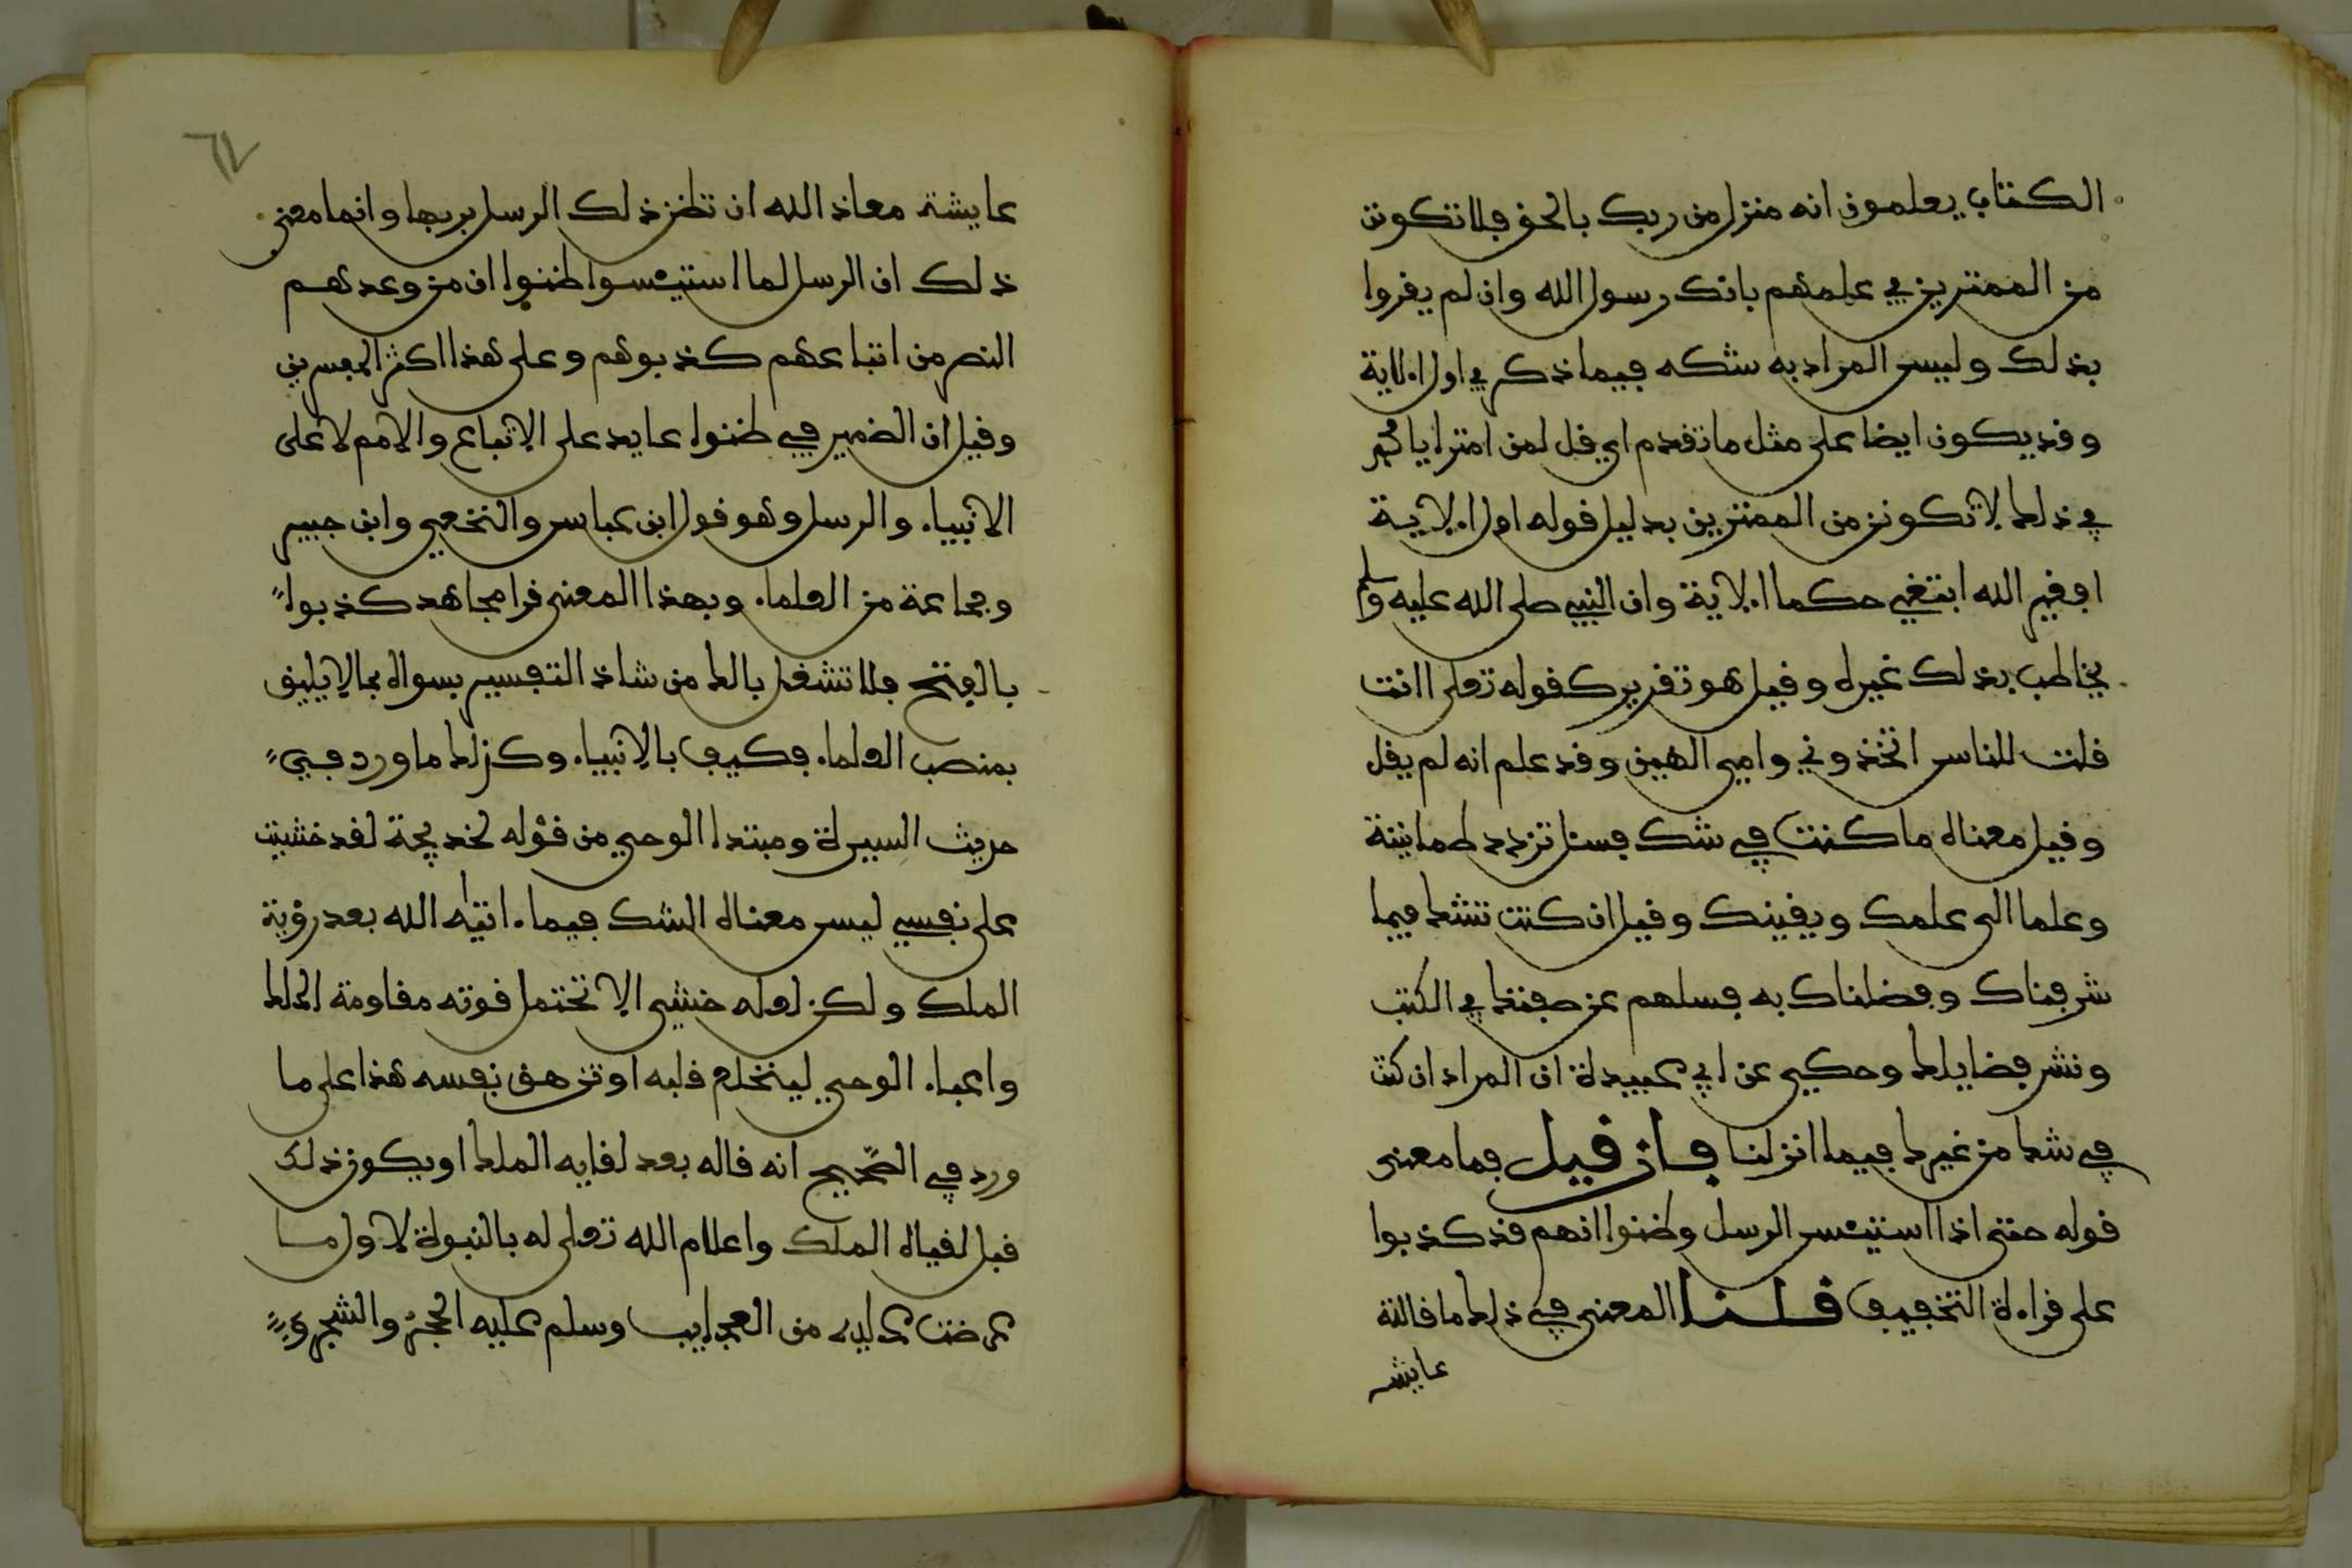 الكتاب يعلمون انه منزل من ربك بالحق فلا تكونن
من الممترين في علمهم بانك رسول الله وان لم يقروا
بذلك وليس المراد به شكه فيما ذكر في اول الاية
وقد يكون ايضا على مثل ما تقدم اي قل لمن امترا يا محمد
في ذلك لا تكونن من الممترين بدليل قوله اول الاية
افغير الله ابتغي حكما الاية وان النبي صلى الله عليه وسلم
يخاطب بذلك غيره وقيل هو تقرير كقوله تعلى اانت
قلت للناس اتخذوني وامي الهين وقد علم انه لم يقل
وقيل معناه ما كنت في شك فسئل تزدد طمانينة
وعلما الى علمك ويقينك وقيل ان كنت تشك فيما
شرفناك وفضلناك به فسلهم عن صفتك في الكتب
ونشر فضايلك وحكي عن ابي عبيدة ان المراد ان كنت
في شك من غيرك فيما انزلنا فان قيل فما معنى
قوله حتى اذا استيئس الرسل وظنوا انهم قد كذبوا
على قراءة التخفيف قلنا المعنى في ذلك ما قالته
عايشه
٦٢
عايشة معاذ الله ان تظن ذلك الرسل بربها وانما معنى
ذلك ان الرسل لما استيئسوا ظنوا ان من وعدهم
النصر من اتباعهم كذبوهم وعلى هذا اكثر المفسرين
وقيل ان الضمير في ظنوا عايد على الاتباع والامم لا على
الانبياء والرسل وهو قول ابن عباس والنخعي وابن جبير
وجماعة من العلماء وبهذا المعنى قرا مجاهد كذبوا
بالفتح فلا تشغل بالك من شاذ التفسير بسواه بما لا يليق
بمنصب العلماء فكيف بالانبياء وكذلك ما ورد في
حديث السيرة ومبتدا الوحي من قوله لخديجة لقد خشيت
على نفسي ليس معناه الشك فيما اتيه الله بعد رؤية
الملك ولكن لعله خشي الا تحتمل قوته مقاومة الملك
واعباء الوحي لينخلع قلبه او تزهق نفسه هذا على ما
ورد في الصحيح انه قاله بعد لقايه الملك او يكون ذلك
قبل لقياه الملك واعلام الله تعلى له بالنبوة لاول ما
عرضت عليه من العجايب وسلم عليه الحجر والشجر و